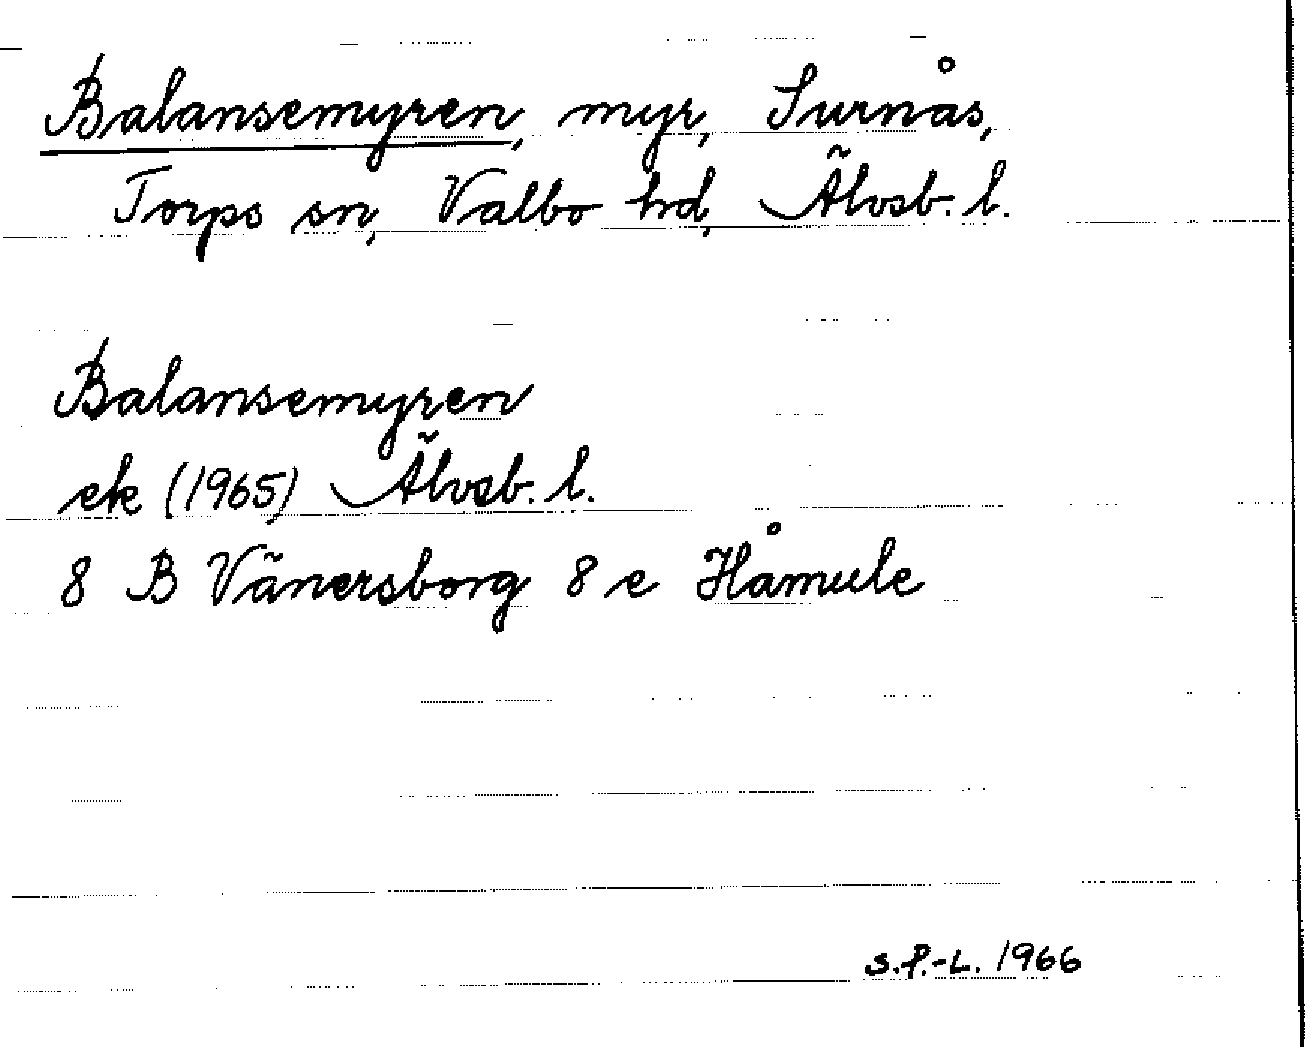 Balansemyren, myr, Surnås,
Torps sn, Valbo hd, Älvsb. l.
Balansemyren
ek (1965) Älvsb. l.
8 B Vänersborg 8 e Håmule
S.P.-L. 1966